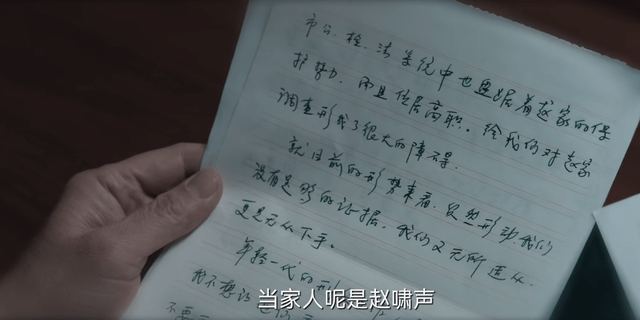 市公、检、法系统中也盘踞着赵家的保
护势力，而且位居高职。给我们对赵家
调查形成了很大的障碍。
就目前的形势来看，
没有足够的证据，我们又无所适从，
更是无从下手。
年轻一代的
我不想
不要
当家人呢是赵啸声